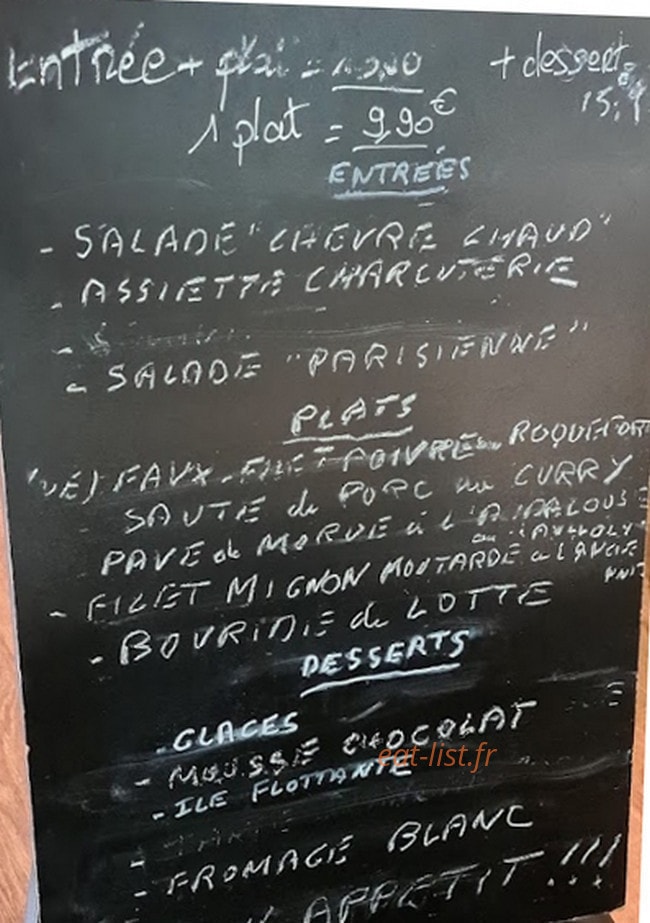 Entrée + plat = + dessert
1 plat = 9,90€
ENTREÉS
- SALADE "CHEVRE CHAUD"
- ASSIETTE CHARCUTERIE
- SALADE "PARISIENNE"
PLATS
FAUX-FILET POIVRE ou ROQUEFORT
SAUTE de PORC au CURRY
PAVE de MORUE à L'
- FILET MIGNON MOUTARDE à L'ANCIENNE
- BOURIDIE de LOTTE
DESSERTS
- GLACES
- MOUSSE CHOCOLAT
eat-list.fr
- ILE FLOTTANTE
- FROMAGE BLANC
APPETIT !!!